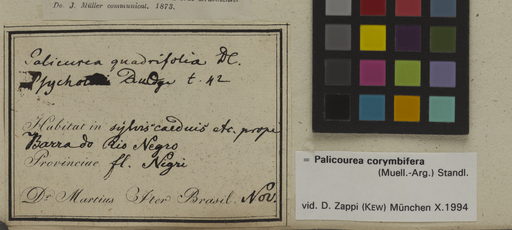 Do. J. Müller communicat. 1873.
Palicurea quadrifolia DC.
Psychot Rudge t. 42
Habitat in sylvis caeduis etc. prope
Barra do Rio Negro
Provinciae fl. Nigri
Dr Martius Iter Brasil. Nov.
= Palicourea corymbifera
(Muell.-Arg.) Standl.
vid. D. Zappi (KEW) München X.1994